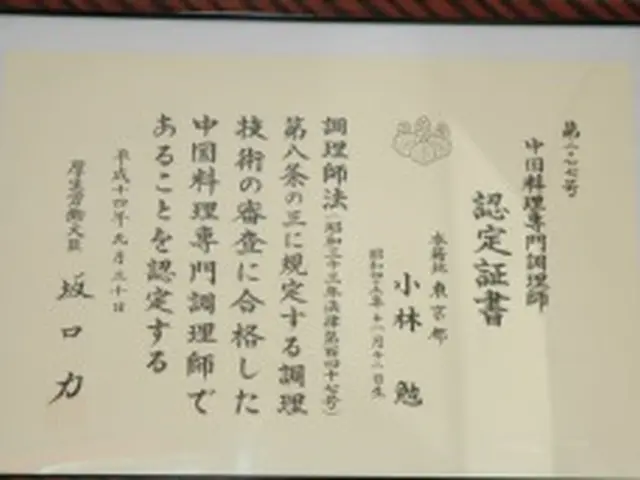 中国料理専門調理師
認定証書
本籍地 東京都
小林 勉
調理師法(昭和三十三年法律第百四十七号)
第八条の三に規定する調理
技術の審査に合格した
中国料理専門調理師で
あることを認定する
平成十四年九月三十日
厚生労働大臣 坂口力